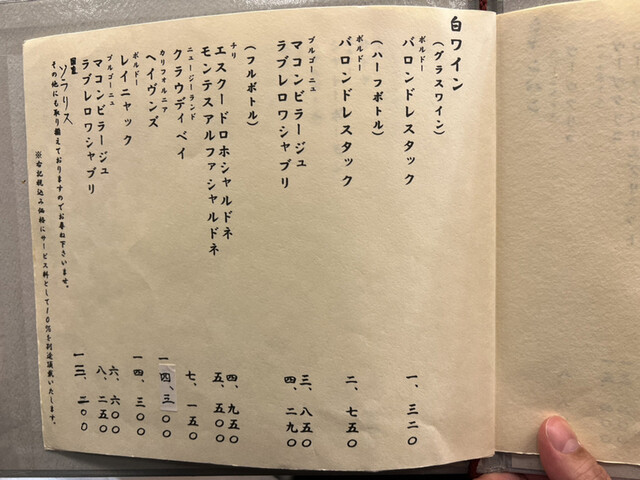 白ワイン
(グラスワイン)
ボルドー
バロンドレスタック 一、三二〇
(ハーフボトル)
ボルドー
バロンドレスタック 二、七五〇
ブルゴーニュ
マコンビラージュ 三、八五〇
ラブレロワシャブリ 四、二九〇
(フルボトル)
チリ
エスクードロホシャルドネ 四、九五〇
モンテスアルファシャルドネ 五、五〇〇
ニュージーランド
クラウディベイ 七、一五〇
カリフォルニア
ヘイヴンズ 一四、三〇〇
ボルドー
レイニャック 一四、三〇〇
ブルゴーニュ
マコンビラージュ 六、六〇〇
ラブレロワシャブリ 八、二五〇
国産
ソラリス 一三、二〇〇
その他にも取り揃えておりますのでお尋ね下さいませ。
※右記税込み価格にサービス料として10%を別途頂戴いたします。